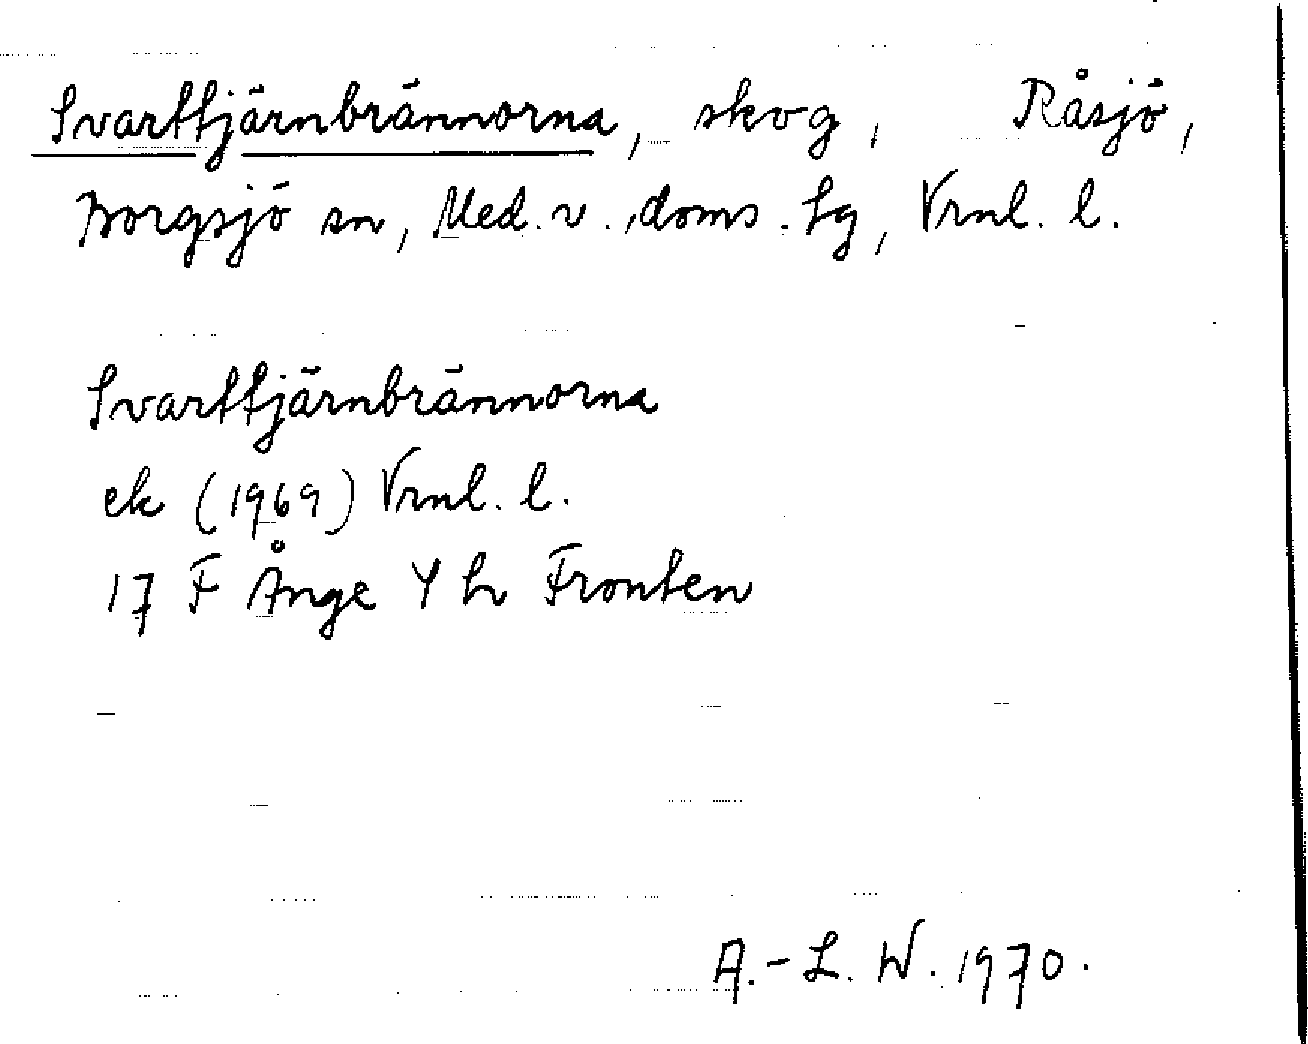 Svarttjärnbrännorna, skog, Råsjö,
Borgsjö sn, Med. v. doms. tg, Vrnl. l.
Svarttjärnbrännorna
ek (1969) Vrnl. l.
17 F Ånge Y h Fronten
A.-L. W. 1970.